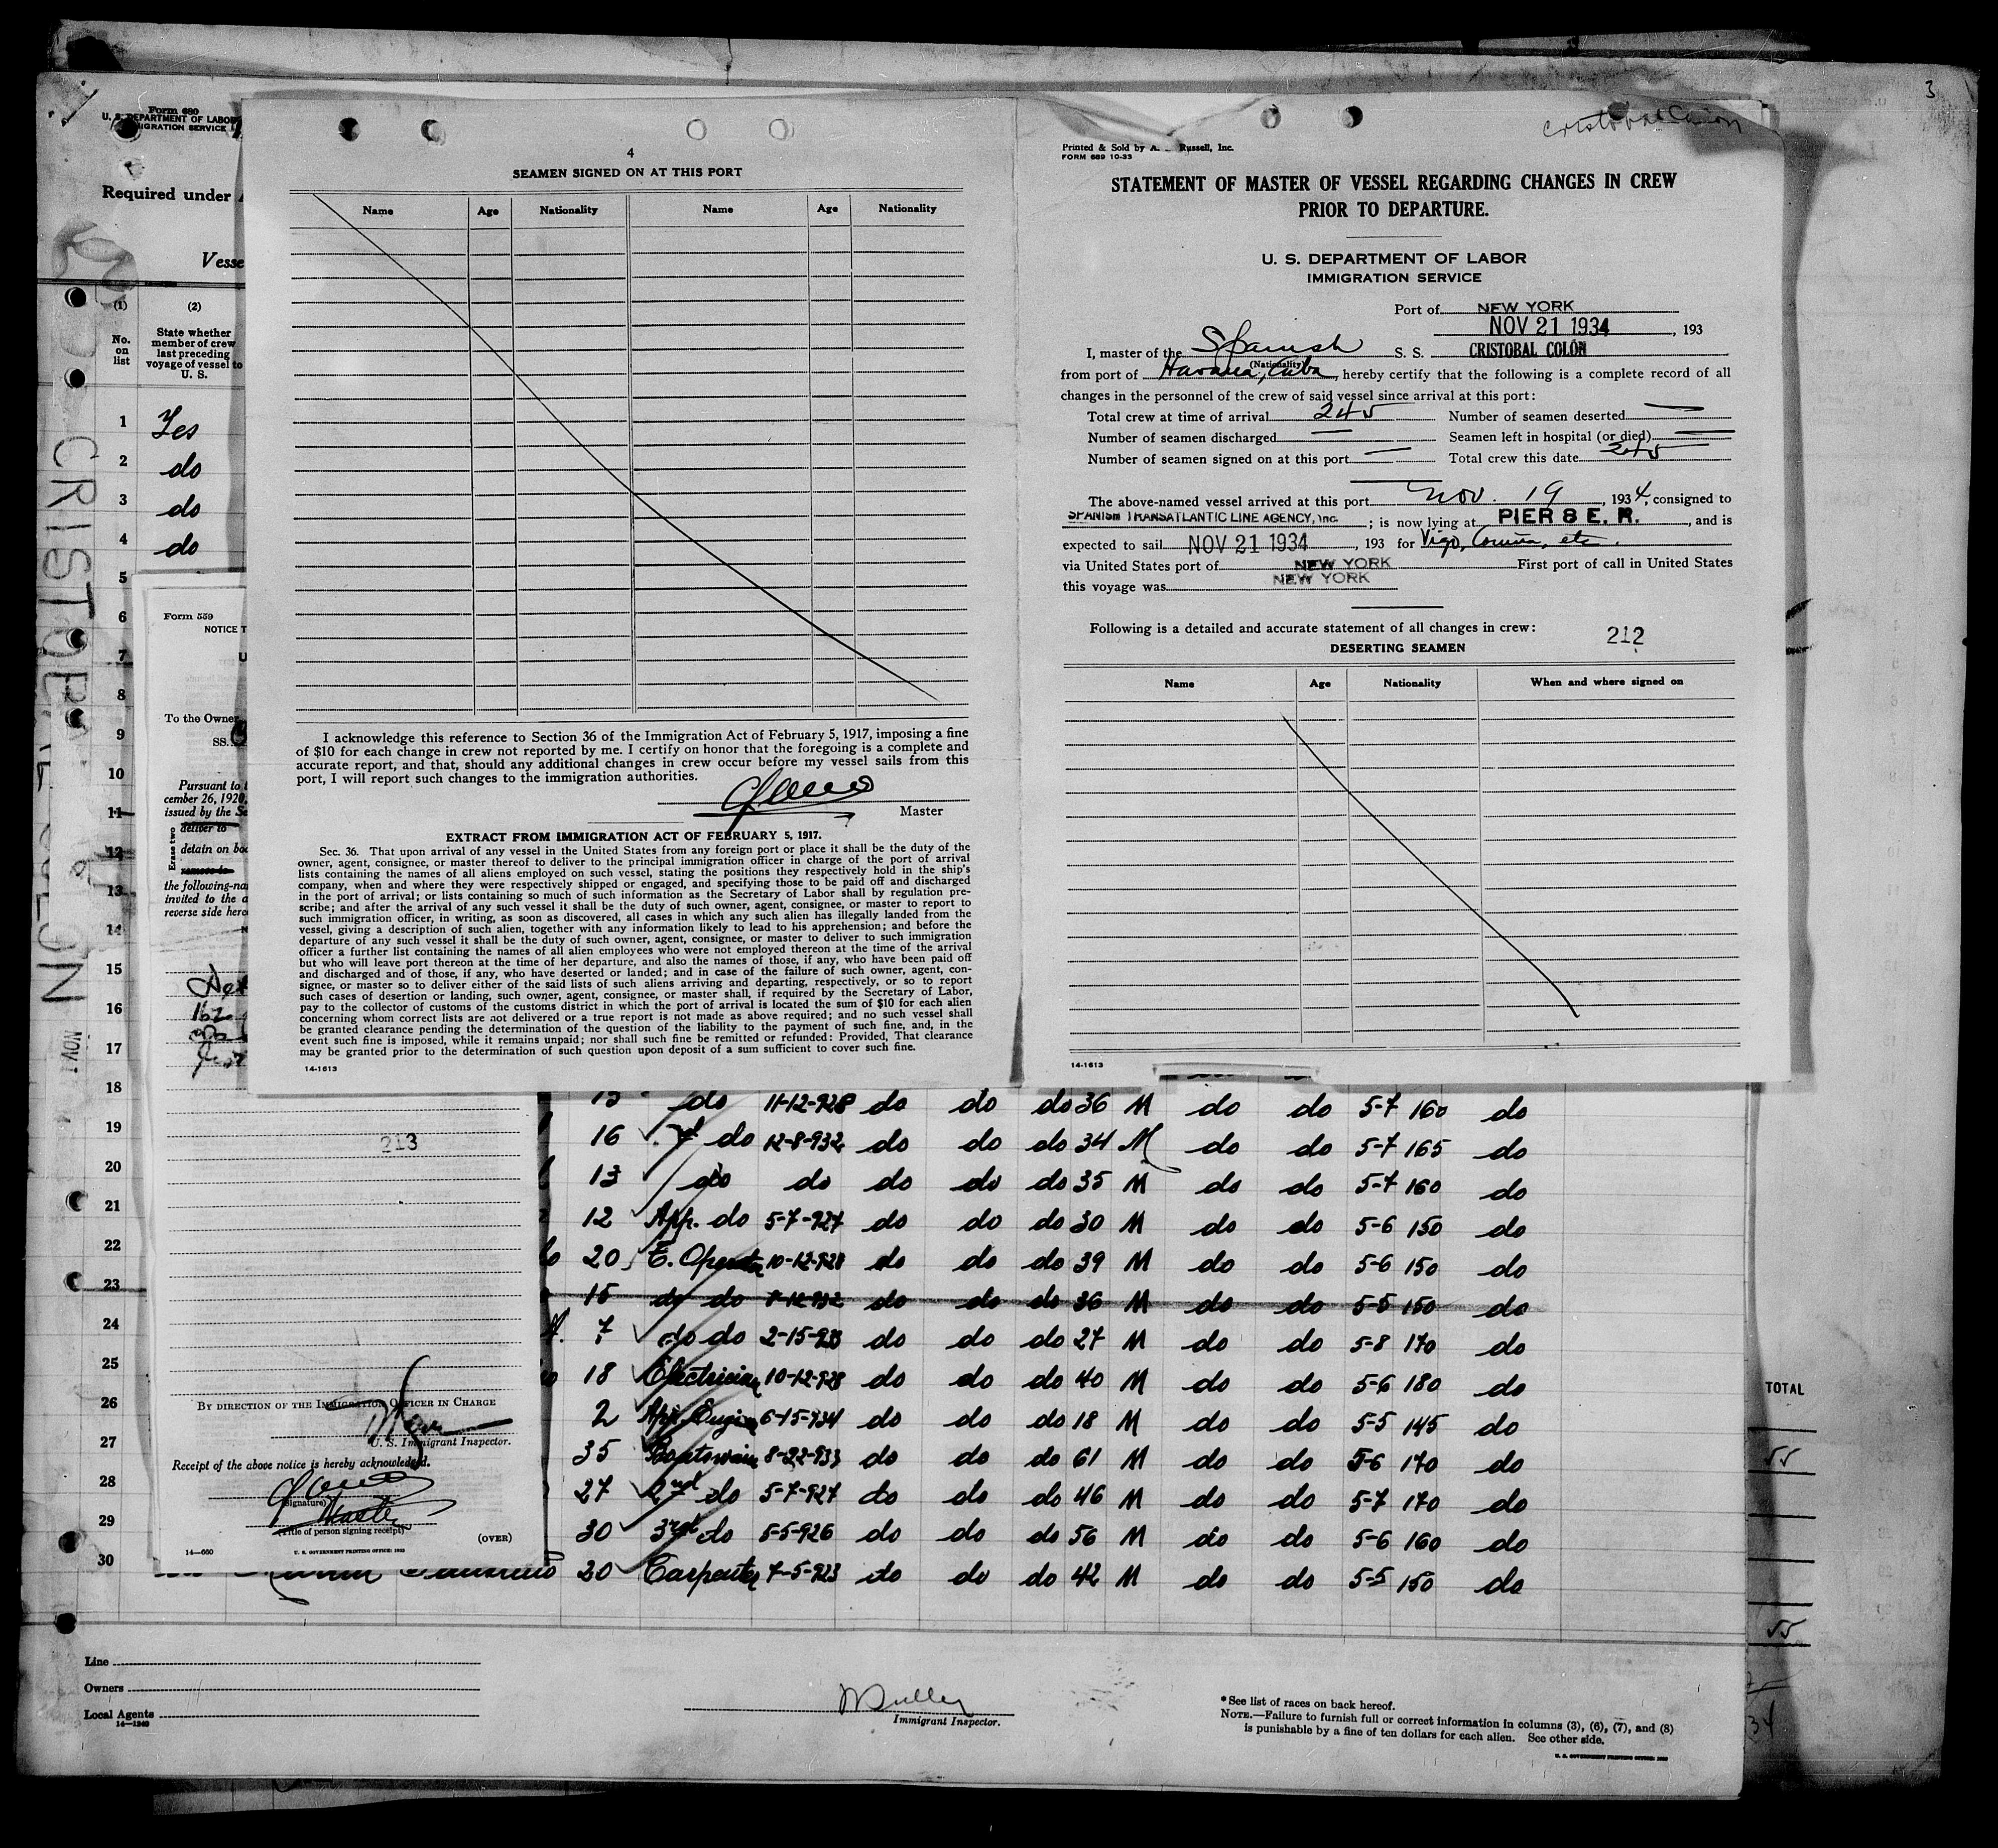 3
Form 680
U. S. DEPARTMENT OF LABOR
IMMIGRATION SERVICE
Required under
Vesse
(1)
(2)
No.
on
list
State whether
member of crew
last preceding
voyage of vessel to
U. S.
1 Yes
2 do
3 do
4 do
5
6
7
8
9
10
11
12
13
14
15
16
17
18
19
20
21
22
23
24
25
26
27
28
29
30
CRISTOBAL COLON
NOV
Form 559
NOTICE T
U
To the Owner
SS.
Pursuant to t
cember 26, 1920,
issued by the Se
Erase two
deliver to
detain on boa
remove to
the following-na
invited to the a
reverse side here
213
BY DIRECTION OF THE IMMIGRATION OFFICER IN CHARGE
U. S. Immigrant Inspector.
Receipt of the above notice is hereby acknowledged.
(Signature)
Master
(Title of person signing receipt)
(OVER)
14—660
U. S. GOVERNMENT PRINTING OFFICE: 1932
4
SEAMEN SIGNED ON AT THIS PORT
Name Age Nationality Name Age Nationality
I acknowledge this reference to Section 36 of the Immigration Act of February 5, 1917, imposing a fine
of $10 for each change in crew not reported by me. I certify on honor that the foregoing is a complete and
accurate report, and that, should any additional changes in crew occur before my vessel sails from this
port, I will report such changes to the immigration authorities.
Master
EXTRACT FROM IMMIGRATION ACT OF FEBRUARY 5, 1917.
Sec. 36. That upon arrival of any vessel in the United States from any foreign port or place it shall be the duty of the
owner, agent, consignee, or master thereof to deliver to the principal immigration officer in charge of the port of arrival
lists containing the names of all aliens employed on such vessel, stating the positions they respectively hold in the ship's
company, when and where they were respectively shipped or engaged, and specifying those to be paid off and discharged
in the port of arrival; or lists containing so much of such information as the Secretary of Labor shall by regulation pre-
scribe; and after the arrival of any such vessel it shall be the duty of such owner, agent, consignee, or master to report to
such immigration officer, in writing, as soon as discovered, all cases in which any such alien has illegally landed from the
vessel, giving a description of such alien, together with any information likely to lead to his apprehension; and before the
departure of any such vessel it shall be the duty of such owner, agent, consignee, or master to deliver to such immigration
officer a further list containing the names of all alien employees who were not employed thereon at the time of the arrival
but who will leave port thereon at the time of her departure, and also the names of those, if any, who have been paid off
and discharged and of those, if any, who have deserted or landed; and in case of the failure of such owner, agent, con-
signee, or master so to deliver either of the said lists of such aliens arriving and departing, respectively, or so to report
such cases of desertion or landing, such owner, agent, consignee, or master shall, if required by the Secretary of Labor,
pay to the collector of customs of the customs district in which the port of arrival is located the sum of $10 for each alien
concerning whom correct lists are not delivered or a true report is not made as above required; and no such vessel shall
be granted clearance pending the determination of the question of the liability to the payment of such fine, and, in the
event such fine is imposed, while it remains unpaid; nor shall such fine be remitted or refunded: Provided, That clearance
may be granted prior to the determination of such question upon deposit of a sum sufficient to cover such fine.
14-1613
Cristobal Colon
Printed & Sold by A. Russell, Inc.
FORM 689 10-33
STATEMENT OF MASTER OF VESSEL REGARDING CHANGES IN CREW
PRIOR TO DEPARTURE.
U. S. DEPARTMENT OF LABOR
IMMIGRATION SERVICE
Port of NEW YORK
NOV 21 1934, 193
I, master of the Spanish S. S. CRISTOBAL COLÓN
(Nationality)
from port of Havana, Cuba, hereby certify that the following is a complete record of all
changes in the personnel of the crew of said vessel since arrival at this port:
Total crew at time of arrival 245 Number of seamen deserted —
Number of seamen discharged — Seamen left in hospital (or died) —
Number of seamen signed on at this port — Total crew this date 245
The above-named vessel arrived at this port Nov. 19, 1934, consigned to
SPANISH TRANSATLANTIC LINE AGENCY, Inc.; is now lying at PIER 8 E. R., and is
expected to sail NOV 21 1934, 193 for Vigo, Coruña, etc.
via United States port of NEW YORK First port of call in United States
this voyage was NEW YORK
Following is a detailed and accurate statement of all changes in crew:
212
DESERTING SEAMEN
Name Age Nationality When and where signed on
14-1613
15 do 11-12-928 do do do 36 M do do 5-7 160 do
16 do 12-8-932 do do do 34 M do do 5-7 165 do
13 do do do do do 35 M do do 5-7 160 do
12 App. do 5-7-927 do do do 30 M do do 5-6 150 do
20 E. Operator 10-12-928 do do do 39 M do do 5-6 150 do
15 do do do do do 36 M do do 5-5 150 do
7 do do 2-15-933 do do do 27 M do do 5-8 170 do
18 Electrician 10-12-928 do do do 40 M do do 5-6 180 do
2 App. Engin 6-15-934 do do do 18 M do do 5-5 145 do
35 Boatswain 8-22-933 do do do 61 M do do 5-6 170 do
27 2nd do 5-7-927 do do do 46 M do do 5-7 170 do
30 3rd do 5-5-926 do do do 56 M do do 5-6 160 do
20 Carpenter 7-5-923 do do do 42 M do do 5-5 150 do
TOTAL
55
55
34
Line
Owners
Local Agents
14—1240
Immigrant Inspector.
*See list of races on back hereof.
NOTE.—Failure to furnish full or correct information in columns (3), (6), (7), and (8)
is punishable by a fine of ten dollars for each alien. See other side.